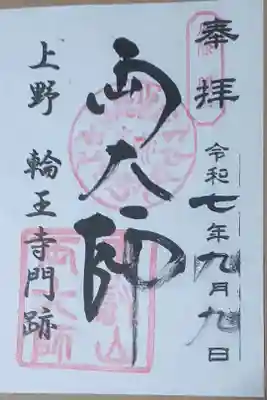 奉拝
令和七年九月九日
両大師
上野 輪王寺門跡